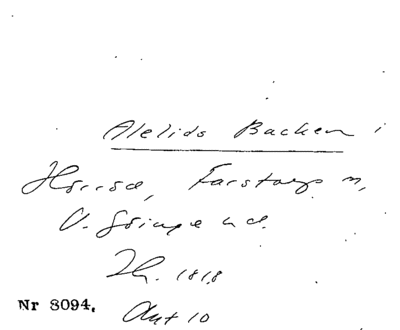 Alelids Backen i
Hörröd, Farstorps sn,
V. Göinge hd.
Th. 1818
Nr 8094.
Ant 10